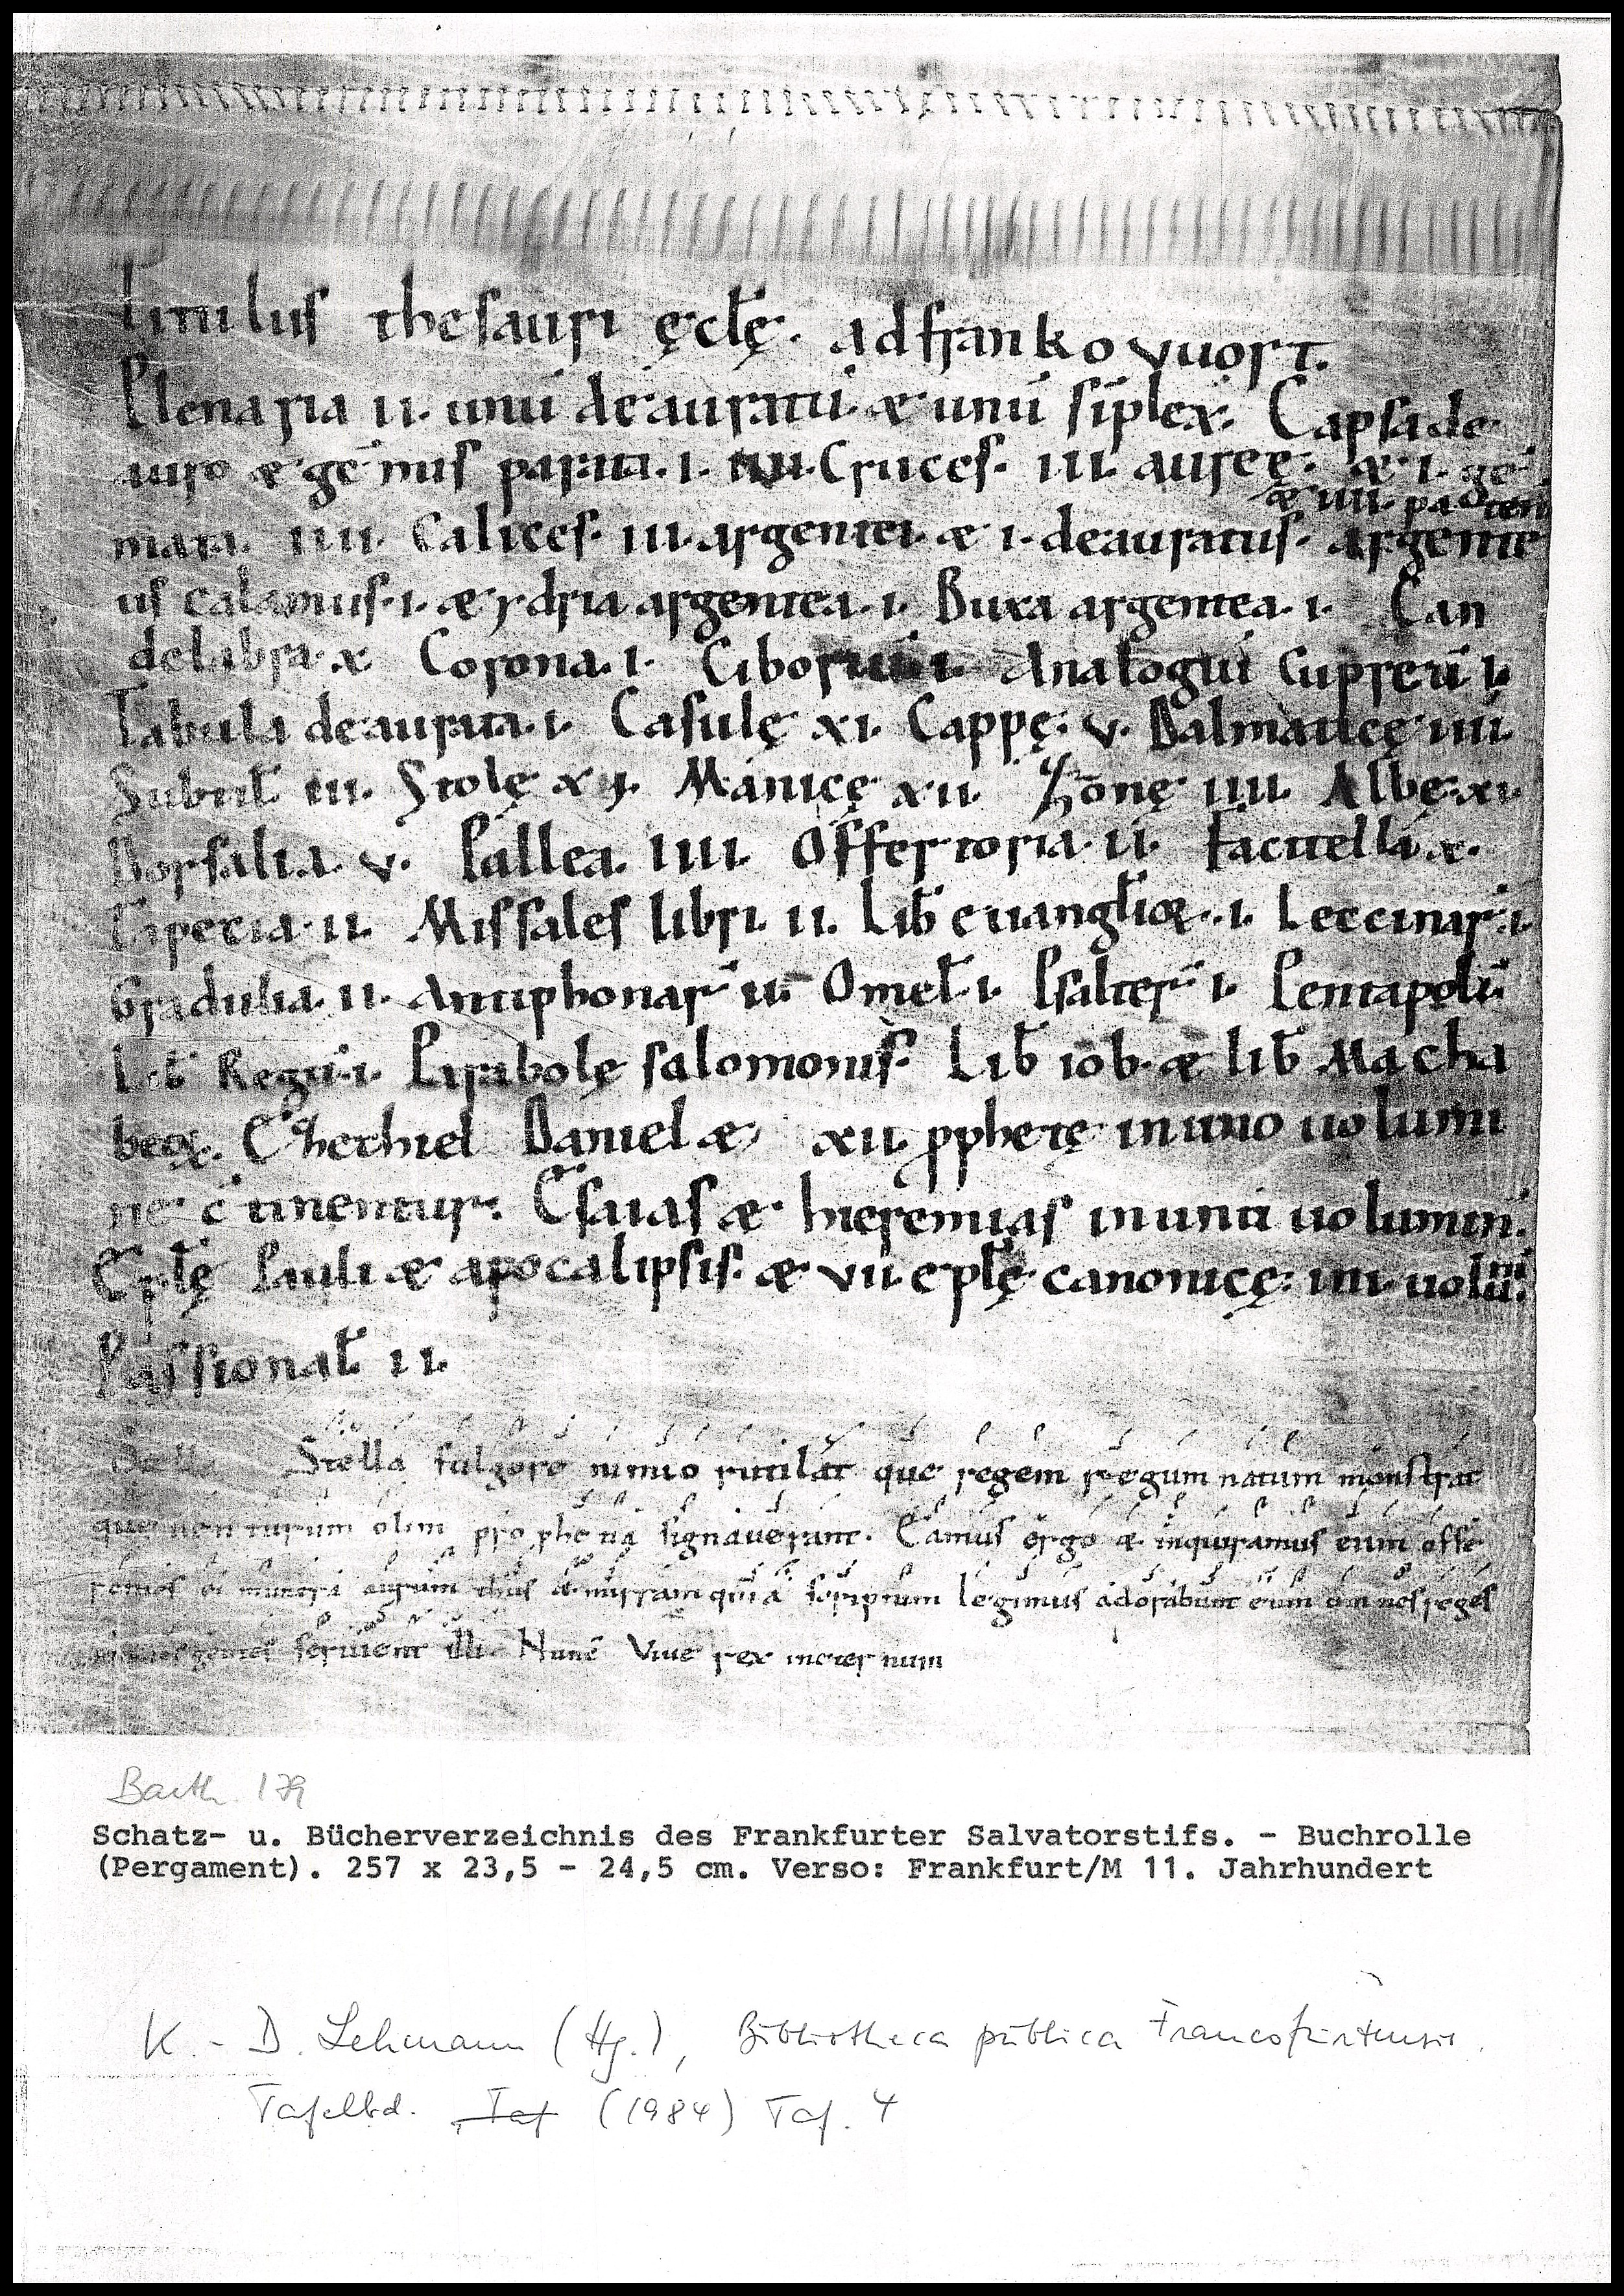 Titulus thesauri ęcl̄ę. ad franko vuort.
Plenaria II. unū deauratū. & unū sīplex. Capsa de
auro & gēmis parata. I. Cruces. III. aureę. & I. gē
& IIII. paten
mata. IIII. Calices. III. argentei. & I. deauratus. argente
us calamus. I. & ydria argentea. I. Buxa argentea. I. Can
delabra. X. Corona. I. Ciboriū I. Analogiū cupreū I.
Tabula deaurata. I. Casulę XI. Cappę. V. Dalmaticę IIII.
Subtil̄ III. Stolę XII. Manicę XII. Zonę IIII. Albę XI.
Dorsalia. V. Pallea. IIII. Offertoria. II. Facitella. X.
Tapecia. II. Missales libri. II. Lib̄ euangl̄ioꝝ. I. Lectinar̄. I.
Gradulia. II. Antiphonar̄ II. Omel̄. I. Psalter̄ I. Pentapoli
Lib̄ Regū. I. Parabolę salomonis. Lib̄ iob. & lib̄ Macha
beoꝝ. Ezhechiel Daniel & XII. ꝓphetę in uno uolumi
ne c̄tinentur. Esaias & hieremias in uno uolumin.
Epl̄ę Pauli & apocalipsis. & VII. epl̄ę canonicę. IIII. uolū.
Passional̄ II.
Stella Stella fulgore nimio rutilat que regem regum natum monstrat
quem uenturum olim prophetię signauerant. Eamus ergo & inquiramus eum offe
rentes ei munera aurum thus & mirram quia scriptum legimus adorabunt eum omnes reges
omnes gentes seruient illi. Nunc Viue rex in eternum
Barth. 179
Schatz- u. Bücherverzeichnis des Frankfurter Salvatorstifs. - Buchrolle
(Pergament). 257 x 23,5 - 24,5 cm. Verso: Frankfurt/M 11. Jahrhundert
K.- D. Lehmann (Hg.), Bibliotheca publica Francofurtensis.
Tafelbd. Taf (1984) Taf. 4